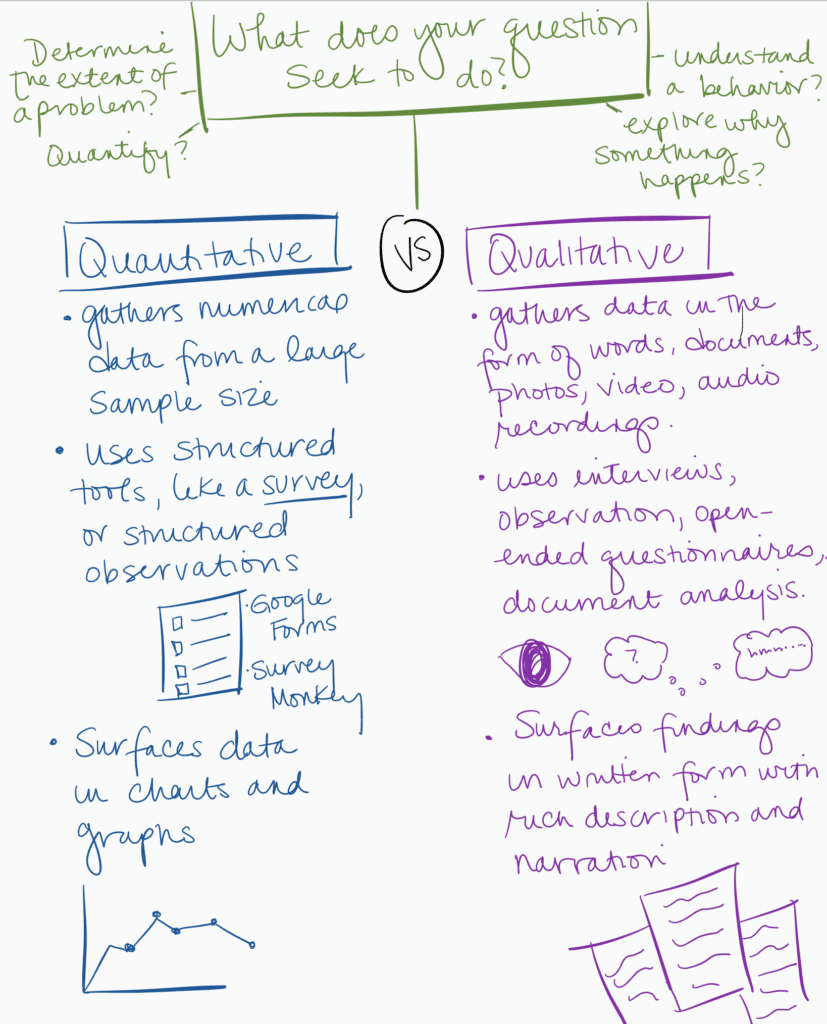 What does your question
seek to do?
Determine
the extent of
a problem?
Quantify?
understand
a behavior?
explore why
something
happens?
Quantitative
VS
Qualitative
• gathers numerical
data from a large
sample size
• uses structured
tools, like a survey,
or structured
observations
• Google
Forms
• Survey
Monkey
• Surfaces data
in charts and
graphs
• gathers data in the
form of words, documents,
photos, video, audio
recordings.
• uses interviews,
observation, open-
ended questionnaires,
document analysis.
?
hmm...
• Surfaces findings
in written form with
rich description and
narration